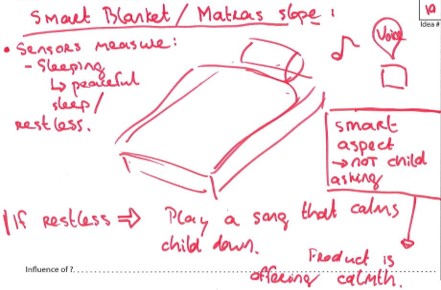 Smart Blanket / Matras slope :
10
Idea #
• Sensors measure:
- Sleeping
↳ peaceful
sleep /
restless.
Voice
smart
aspect
→ not child
asking
If restless ⇒ Play a song that calms
child down.
Product is
offering calmth.
Influence of ?